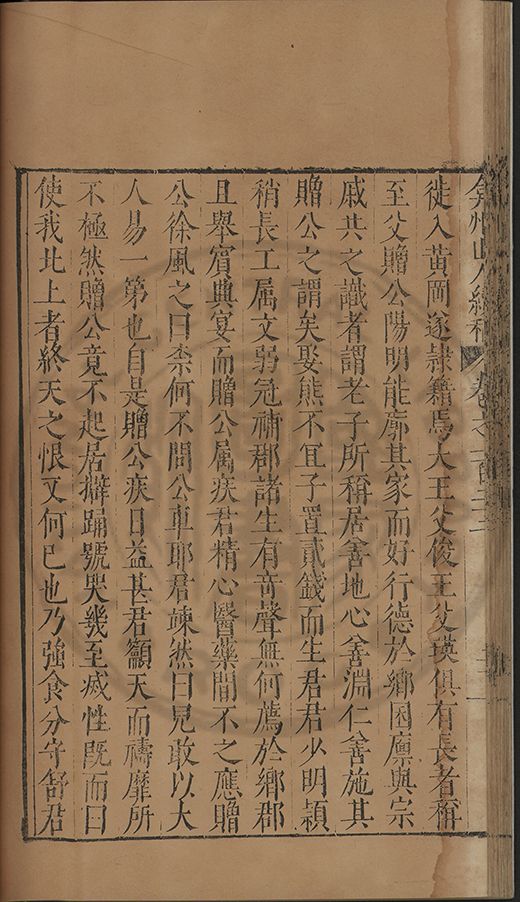 弇州山人續稿 卷之一百三十二
徙入黃岡遂隷籍焉大王父俊王父瑛俱有長者稱
至父贈公陽明能廓其家而好行德於鄉囷廩與宗
戚共之識者謂老子所稱居善地心善淵仁善施其
贈公之謂矣娶熊不宜子置貳錢而生君君少明穎
稍長工属文弱冠補郡諸生有竒聲無何薦於鄉郡
且舉賓典宴而贈公属疾君精心醫藥間不之應贈
公徐風之曰柰何不問公車耶君竦然曰兒敢以大
人易一第也自是贈公疾日益甚君籲天而禱靡所
不極然贈公竟不起居擗踊號哭幾至滅性既而曰
使我北上者終天之恨又何已也乃強食分守舒君